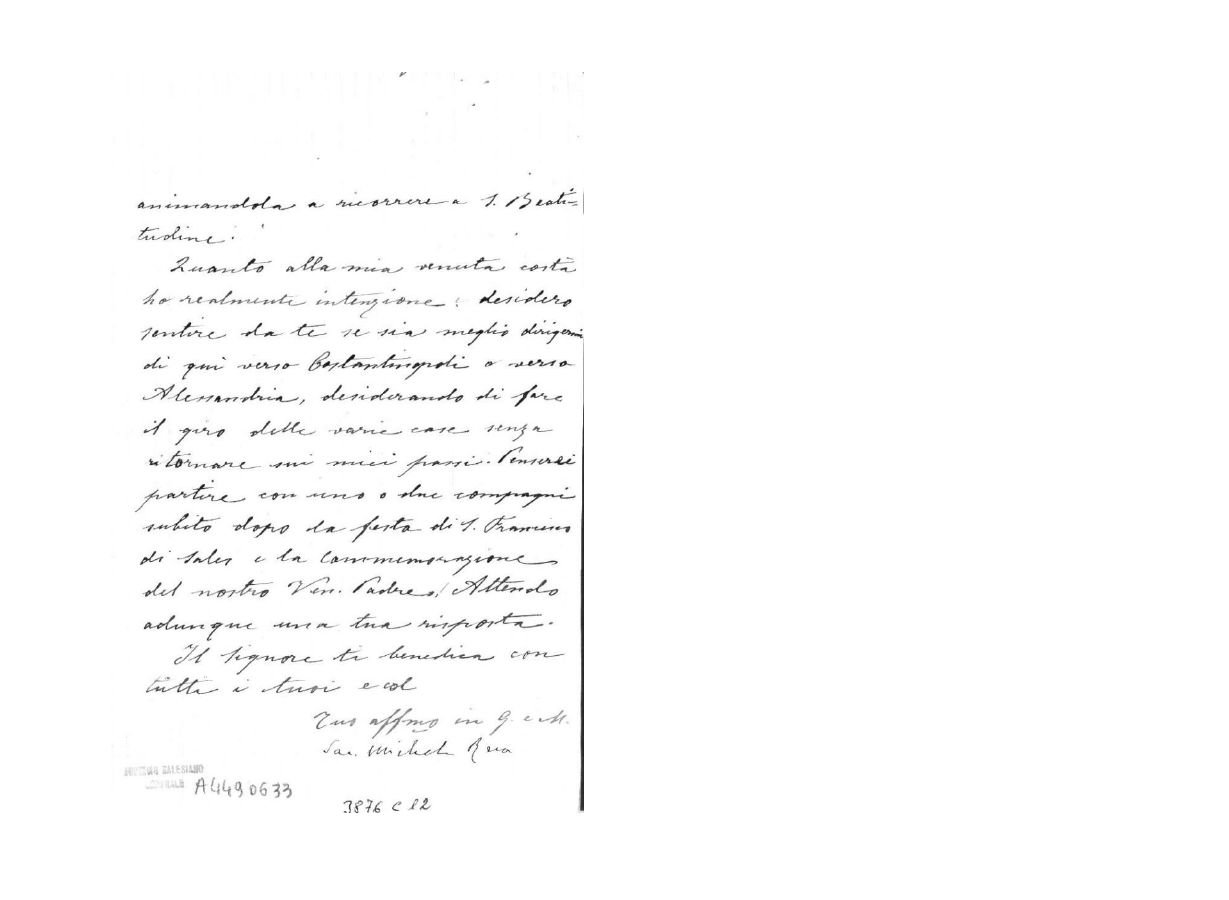 animandola a ricorrere a S. Beati=
tudine.
Quanto alla mia venuta costà
ho realmente intenzione: desidero
sentire da te se sia meglio dirigermi
di qui verso Costantinopoli o verso
Alessandria, desiderando di fare
il giro delle varie case senza
ritornare sui miei passi. Penserei
partire con uno o due compagni
subito dopo la festa di S. Francesco
di Sales e la Commemorazione
del nostro Ven. Padre. Attendo
adunque una tua risposta.
Il Signore ti benedica con
tutti i tuoi e col
Tuo affmo in G. e M.
Sac. Michele Rua
SALESIANO
A4490633
3876 C 12